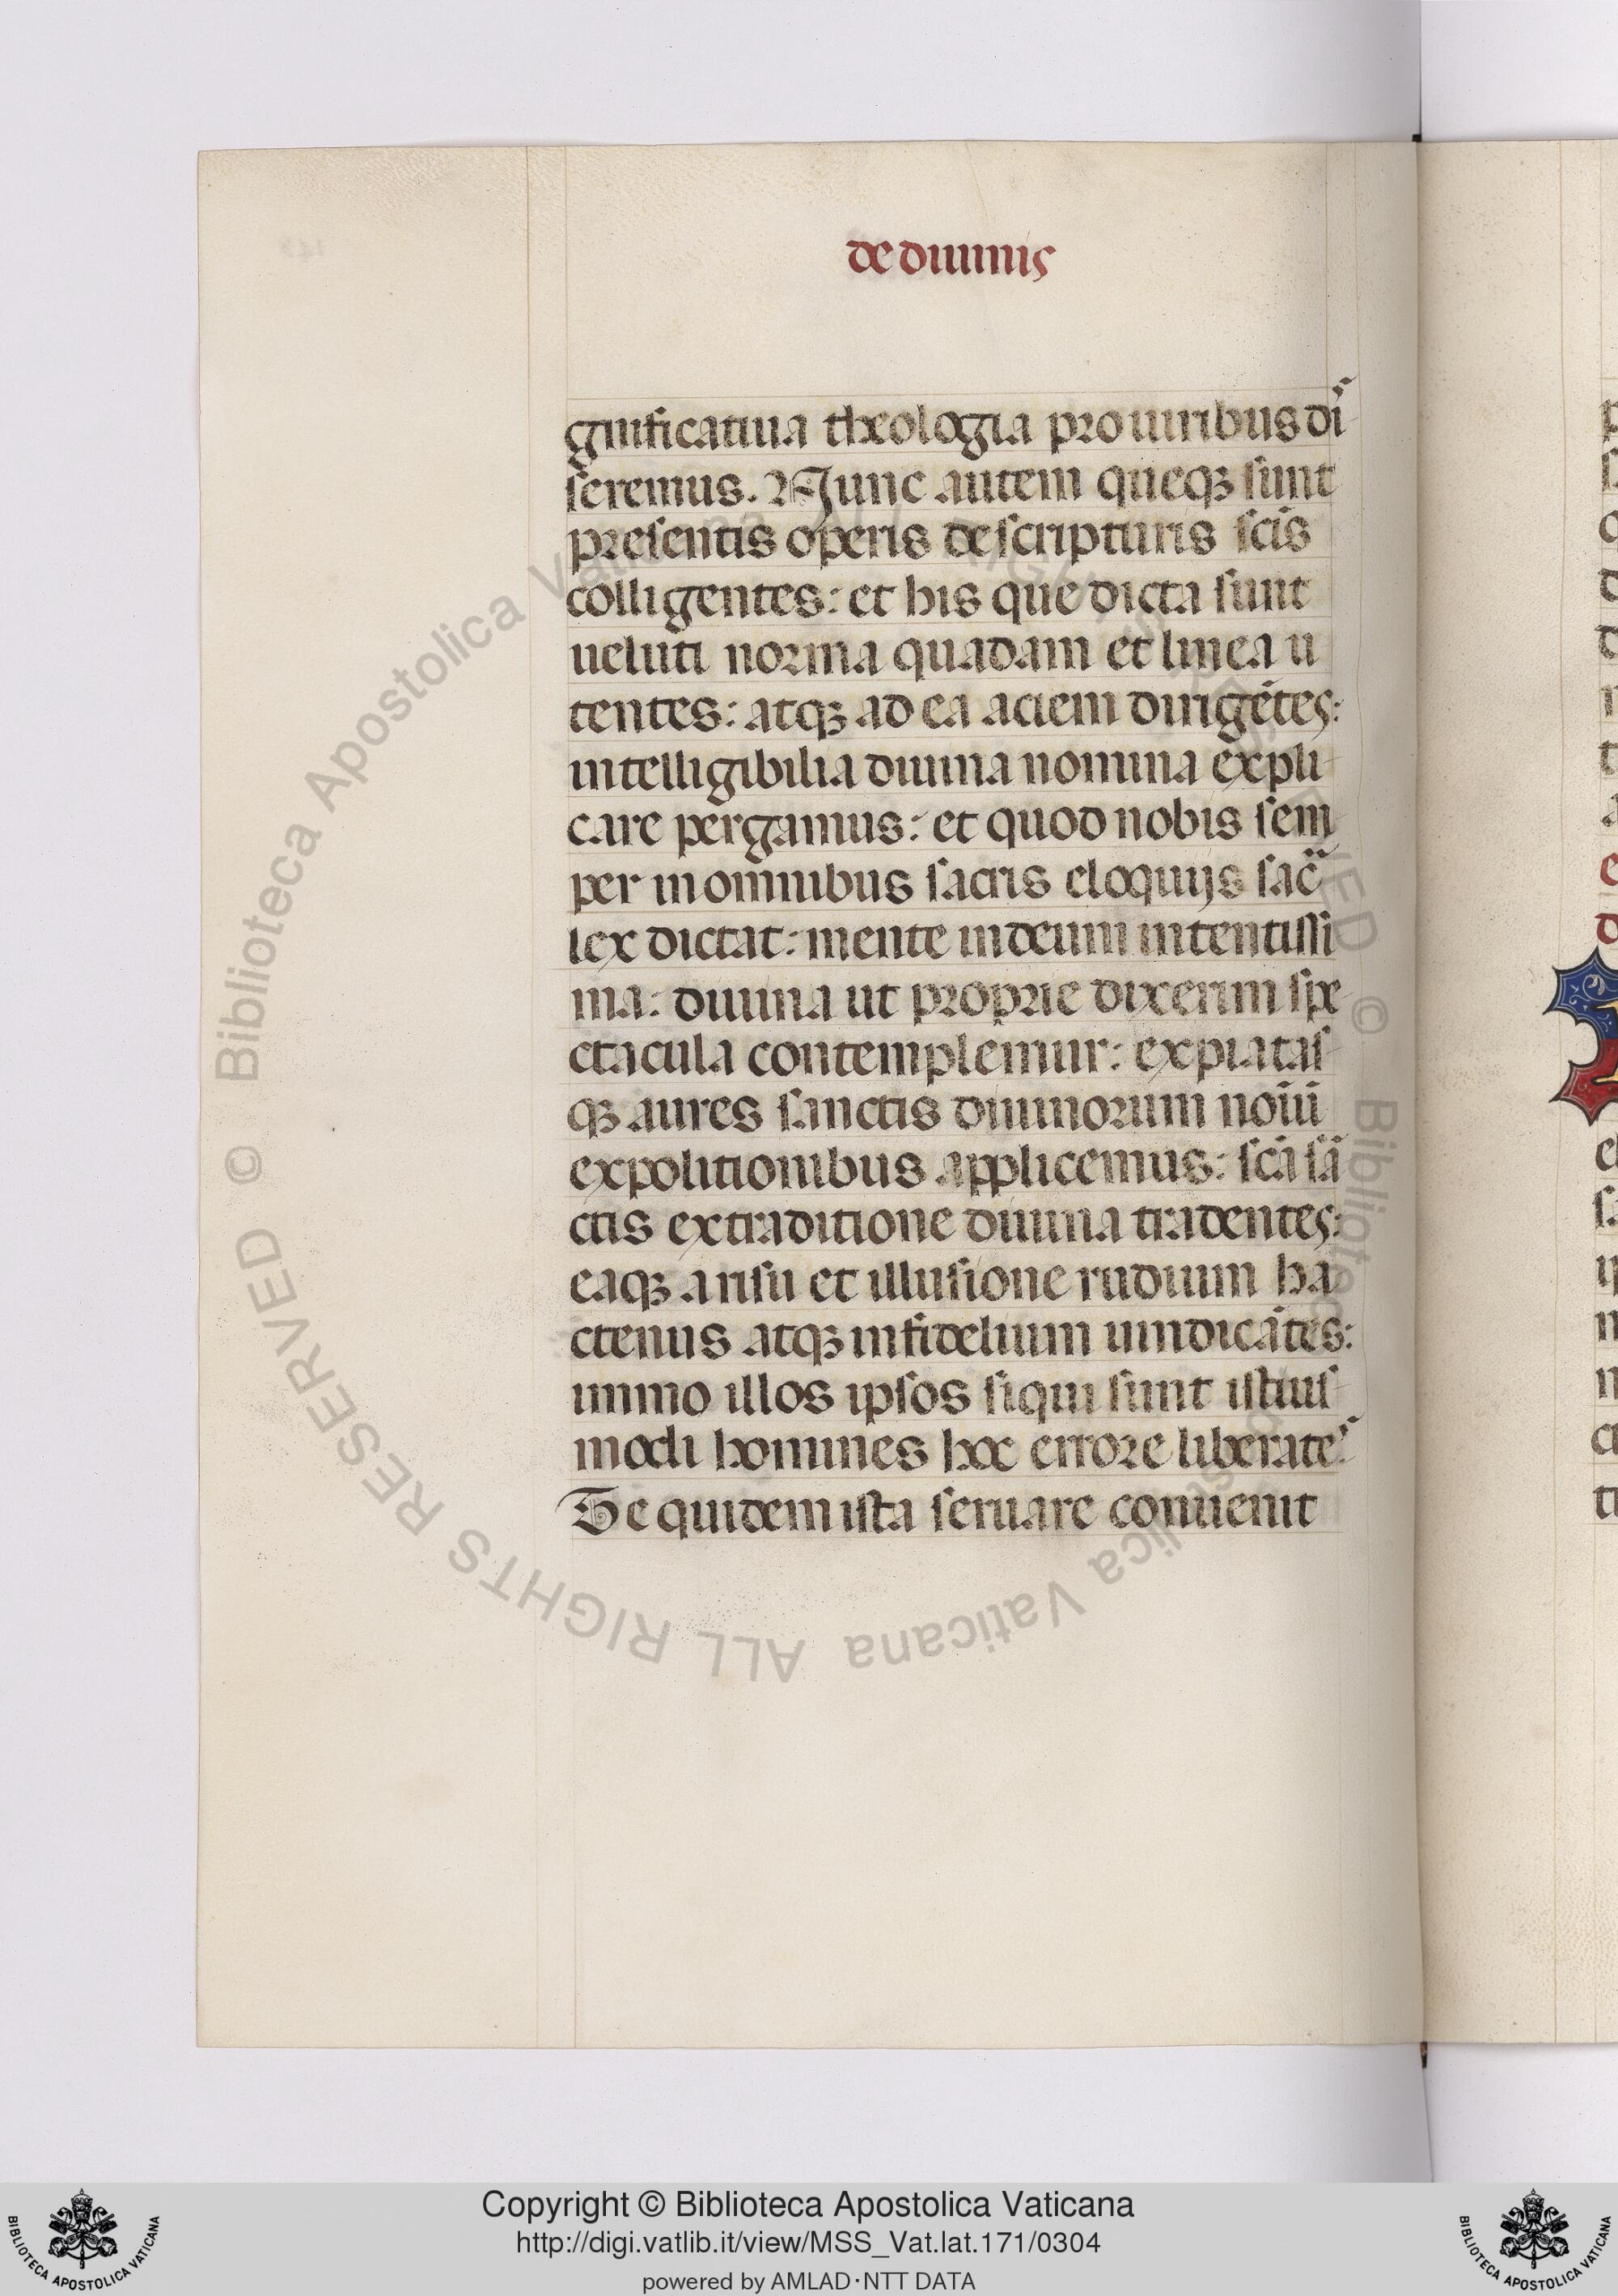 de diuinis
gnificatiua theologia pro uiribus di
seremus. Nunc autem queqꝫ sunt
presentis operis de scripturis scı̄s
colligentes: et his que dicta sunt
ueluti norma quadam et linea u
tentes: atqꝫ ad ea aciem dirigētes:
intelligibilia diuina nomina expli
care pergamus: et quod nobis sem
per in omnibus sacris eloquijs sac̄
lex dictat: mente in deum intentissi
ma: diuina ut proprie dixerim spe
ctacula contemplemur: expiatas
qꝫ aures sanctis diuinorum noı̄ū
expolitionibus applicemus: scā sā
ctis ex traditione diuina tradentes:
eaqꝫ a risu et illusione rudium ha
ctenus atqꝫ infidelium uindicātes:
immo illos ipsos siqui sunt istius
modi homines hoc errore liberateˢ.
Te quidem ista seruare conuenit
© Biblioteca Apostolica Vaticana ALL RIGHTS RESERVED
Copyright © Biblioteca Apostolica Vaticana
http://digi.vatlib.it/view/MSS_Vat.lat.171/0304
powered by AMLAD·NTT DATA
BIBLIOTECA APOSTOLICA VATICANA
BIBLIOTECA APOSTOLICA VATICANA